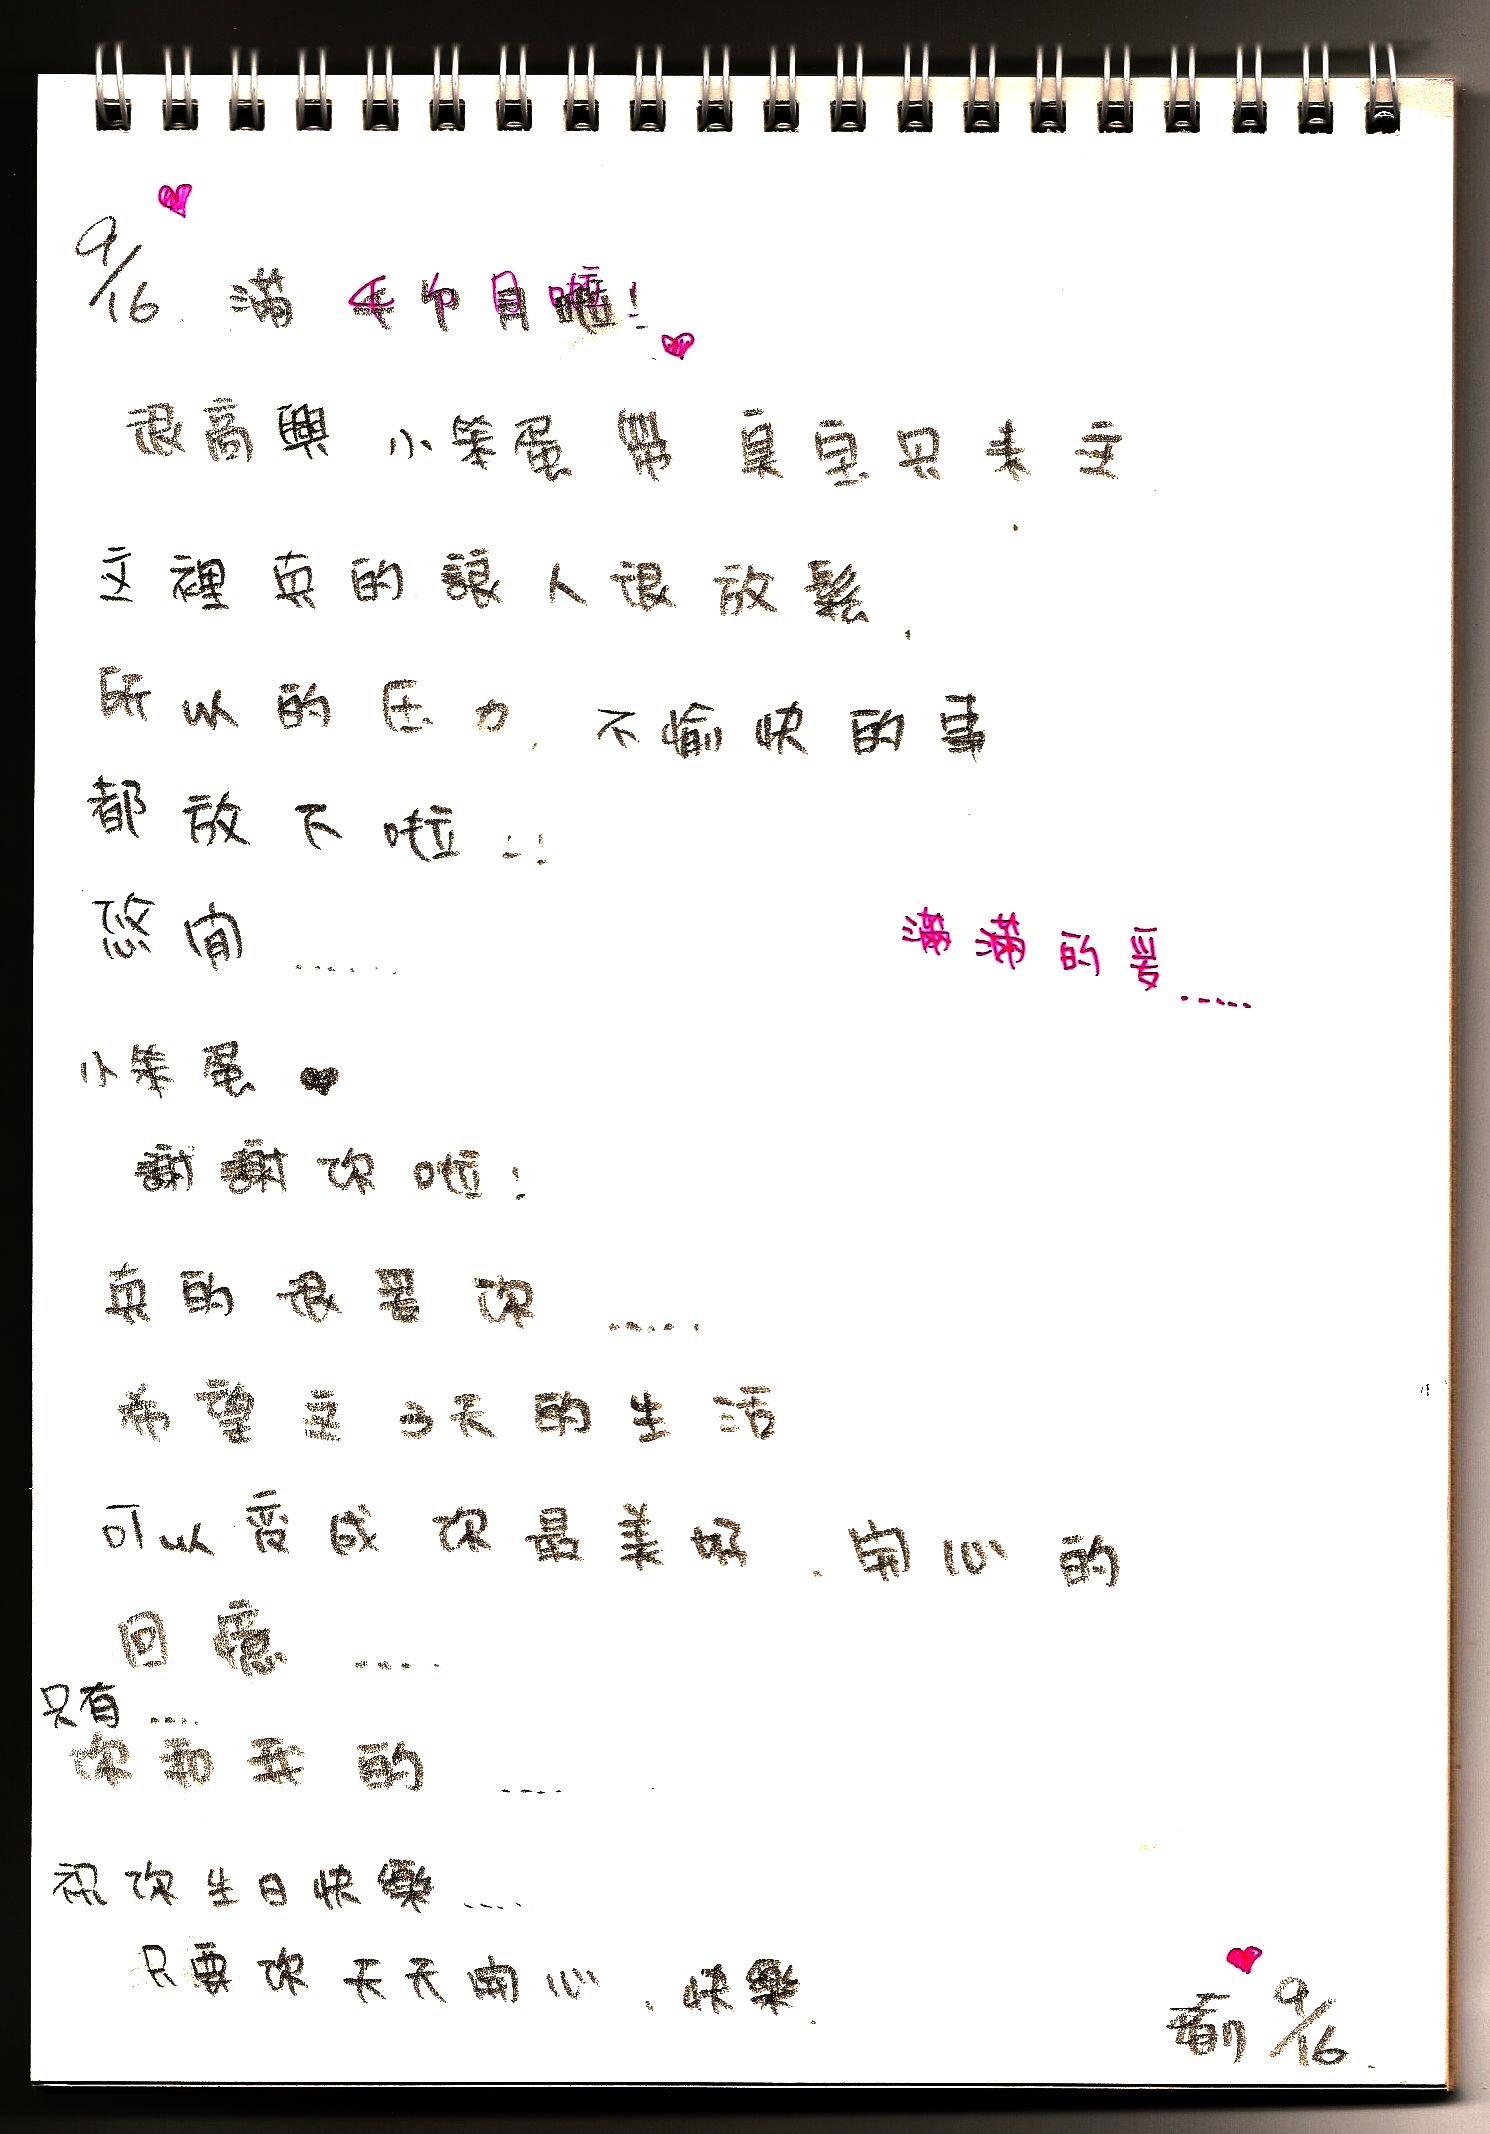 9/16 滿 個月囉!
很高興 小笨蛋 帶 臭寶貝來
這裡真的讓人很放鬆,
所以的压力, 不愉快的事
都放下啦..!!
悠閒......
滿滿的愛.....
小笨蛋♥
謝謝你啦!
真的很愛你.....
希望 3天的生活
可以變成你最美好、開心的
回憶....
只有....
你和我的....
祝你生日快樂....
只要你天天開心、快樂.
9/16.